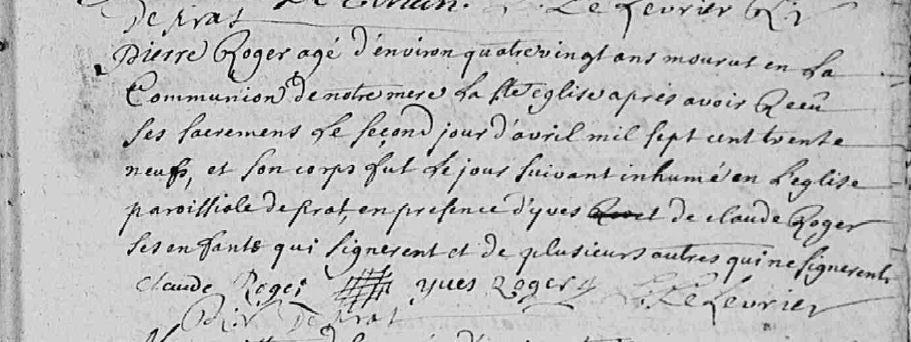 Le Levrier
de prat
Pierre Roger agé d'environ quatrevingt ans mourut en la
Communion de notre mere la ste eglise apres avoir Receû
ses sacremens le second jour d'avril mil sept cent trente
neuf, et son corps fut le jour suivant inhumé en l'eglise
paroissiale de prat, en presence d'yves et de claude Roger
ses enfants qui signerent et de plusieurs autres qui ne signerent
Claude Roger yves roger Le Levrier
de prat